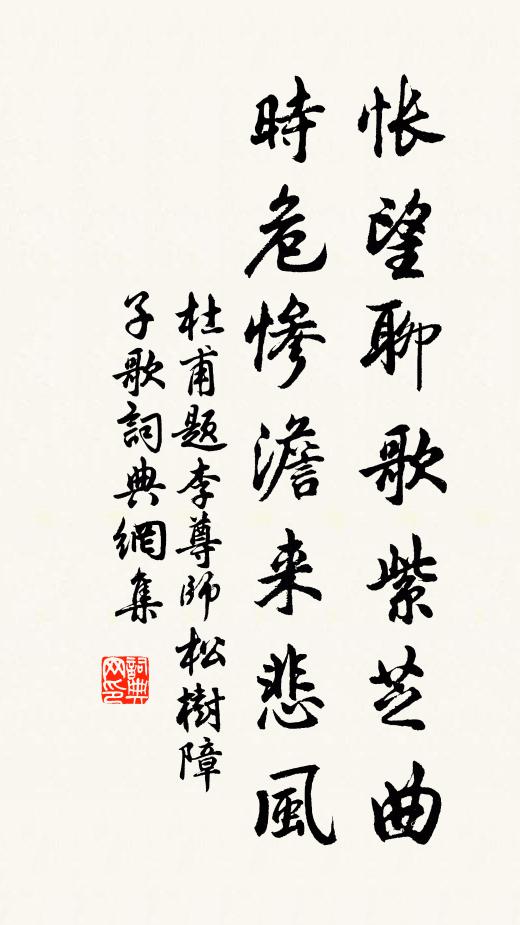 悵望聊歌紫芝曲
時危慘澹来悲風
杜甫題李尊師松樹障
子歌詞典網集
詞典網印